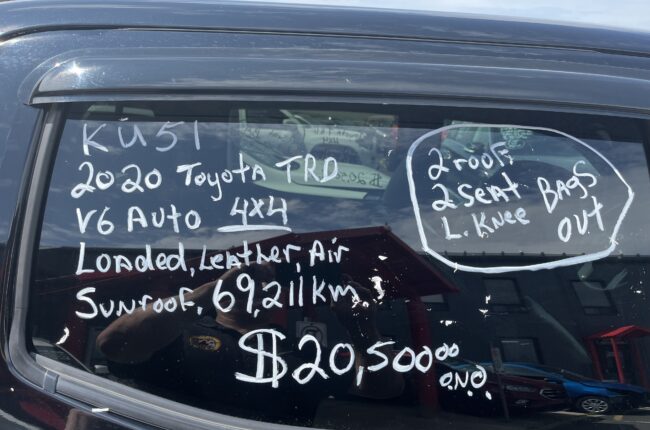 KU51
2020 Toyota TRD
V6 Auto 4x4
Loaded, Leather, Air
Sunroof, 69,211 Km.
$20,500.00
O.N.O.
2 roof
2 Seat BAGS
L. Knee OUT